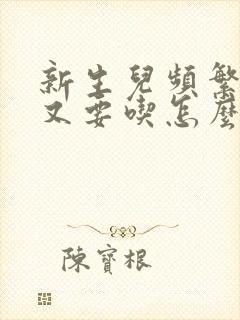 新生兒頻繁
又要喫怎麼
陳寶根